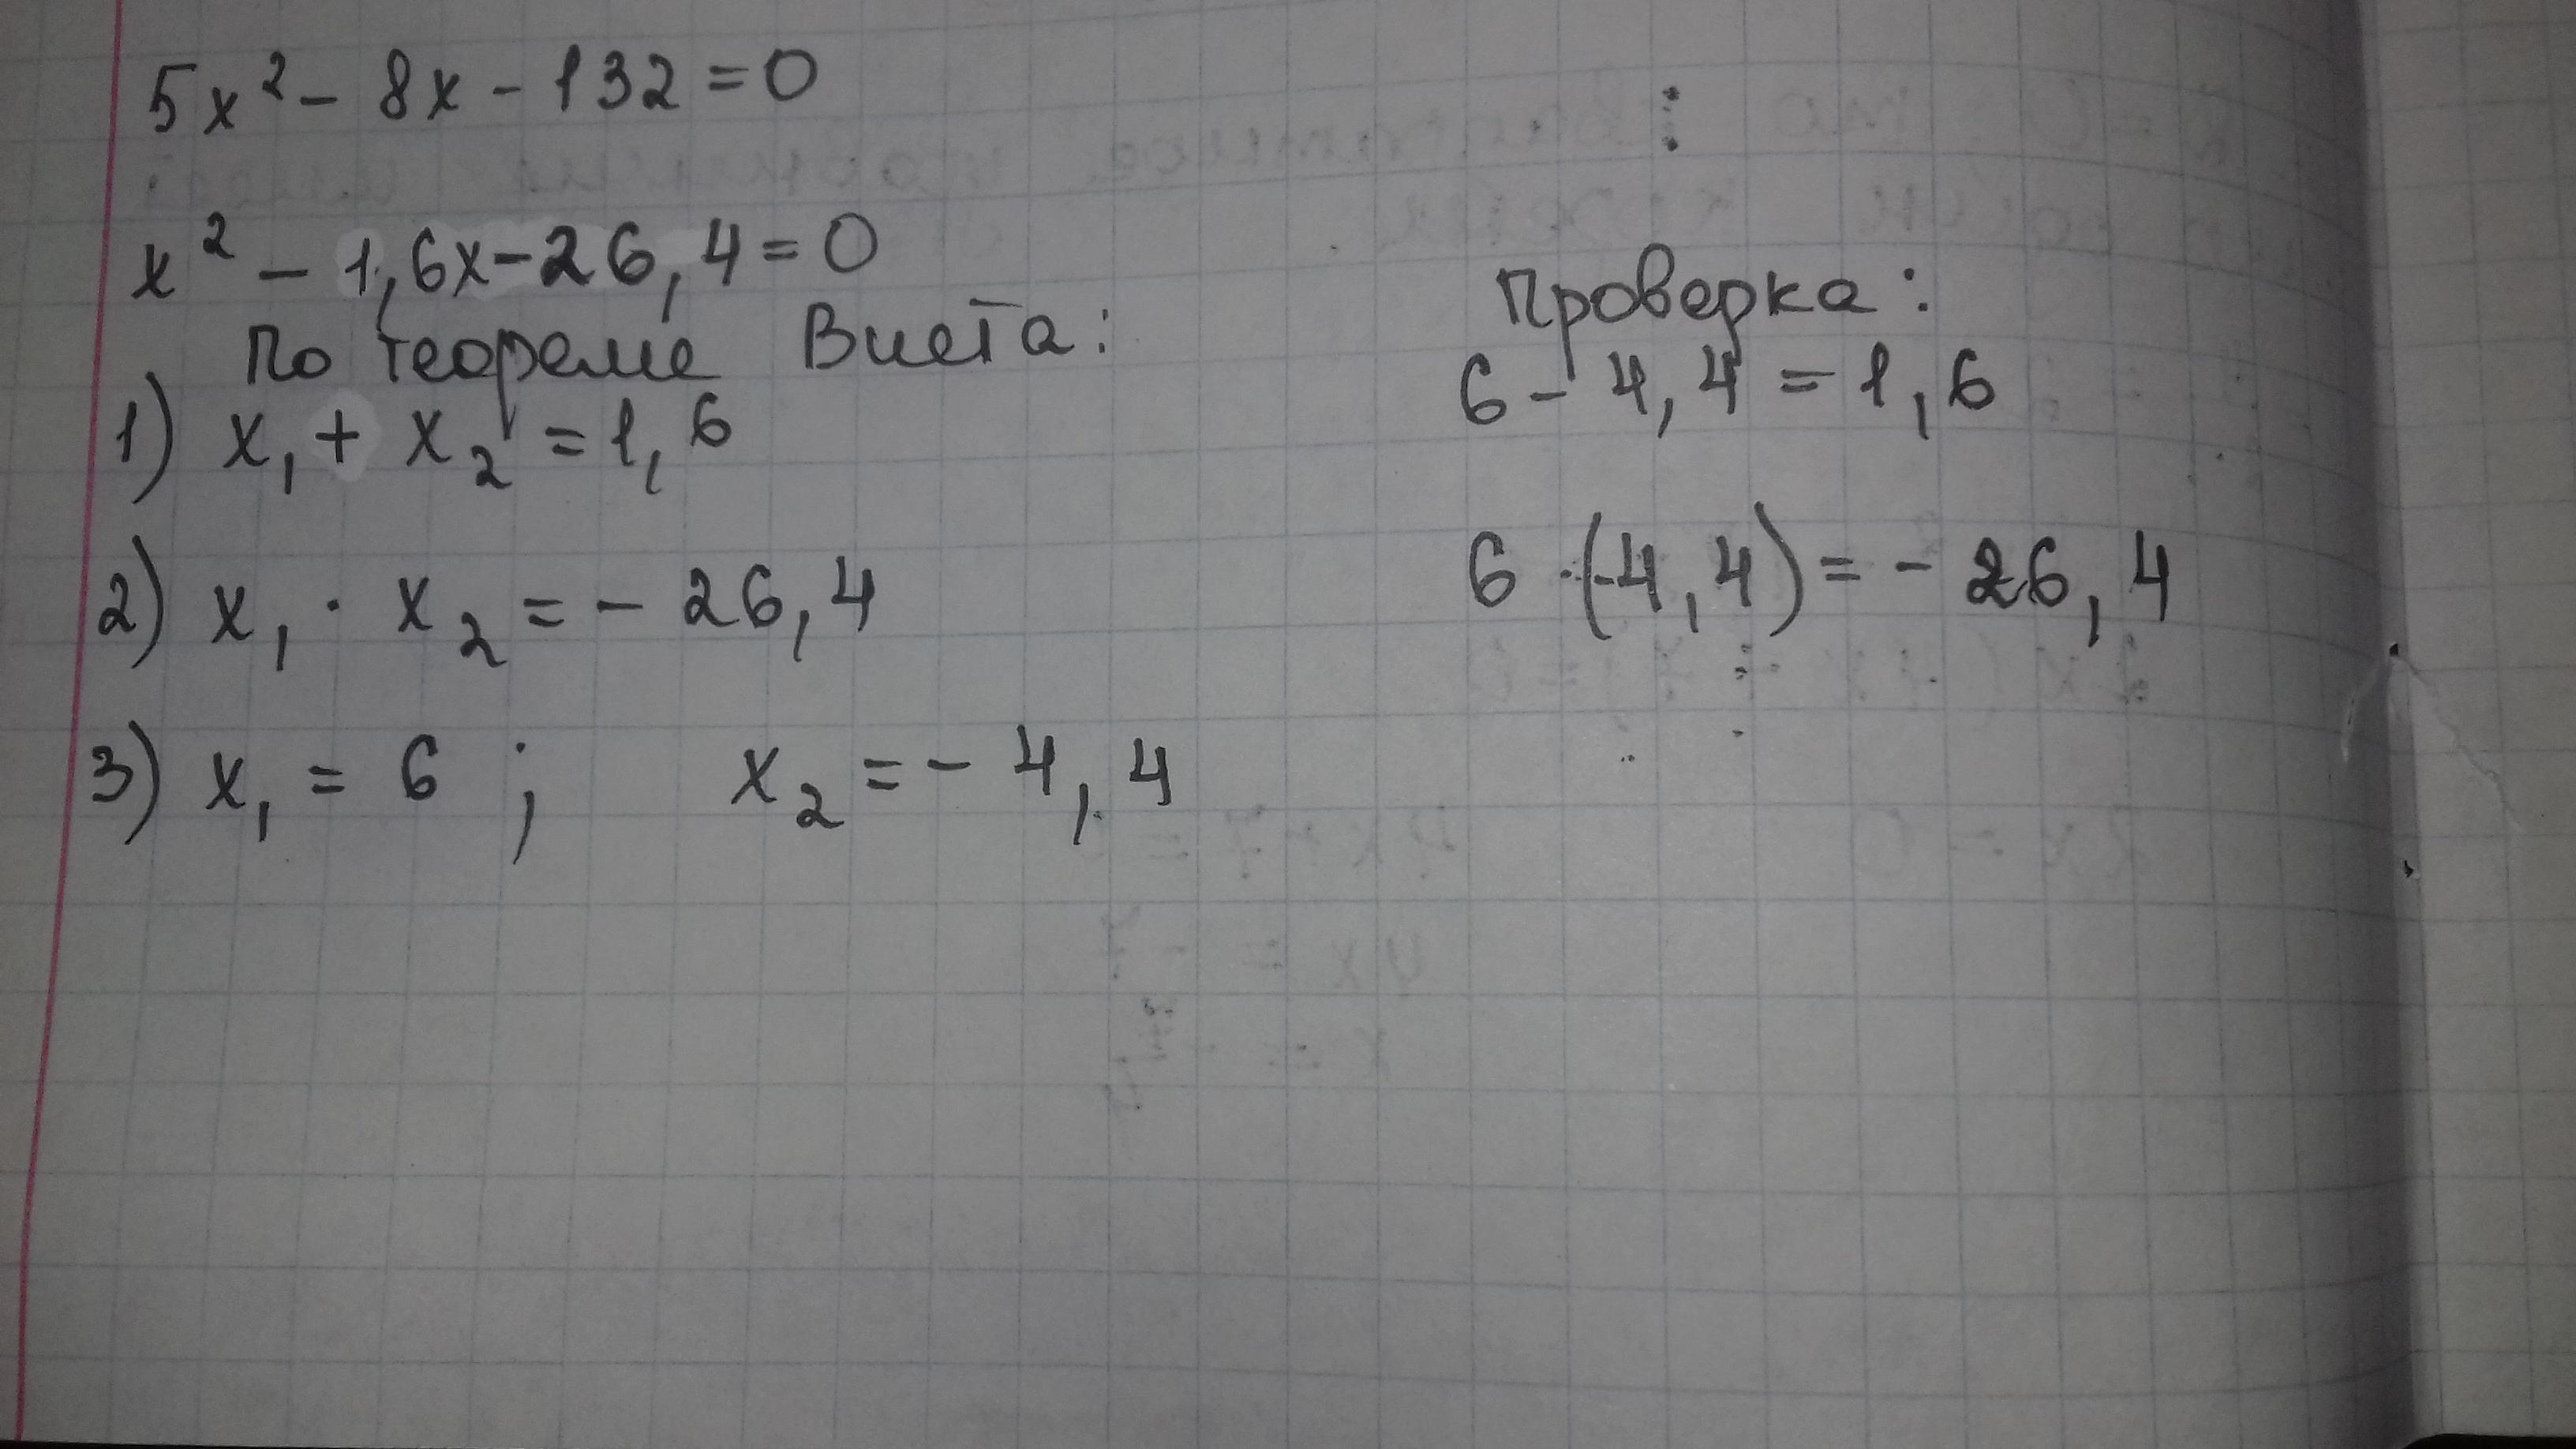 5x² - 8x - 132 = 0
x² - 1,6x - 26,4 = 0
По теореме Виета:
1) x₁ + x₂ = 1,6
2) x₁ · x₂ = - 26,4
3) x₁ = 6 ; x₂ = - 4,4
Проверка:
6 - 4,4 = 1,6
6 · (-4,4) = - 26,4